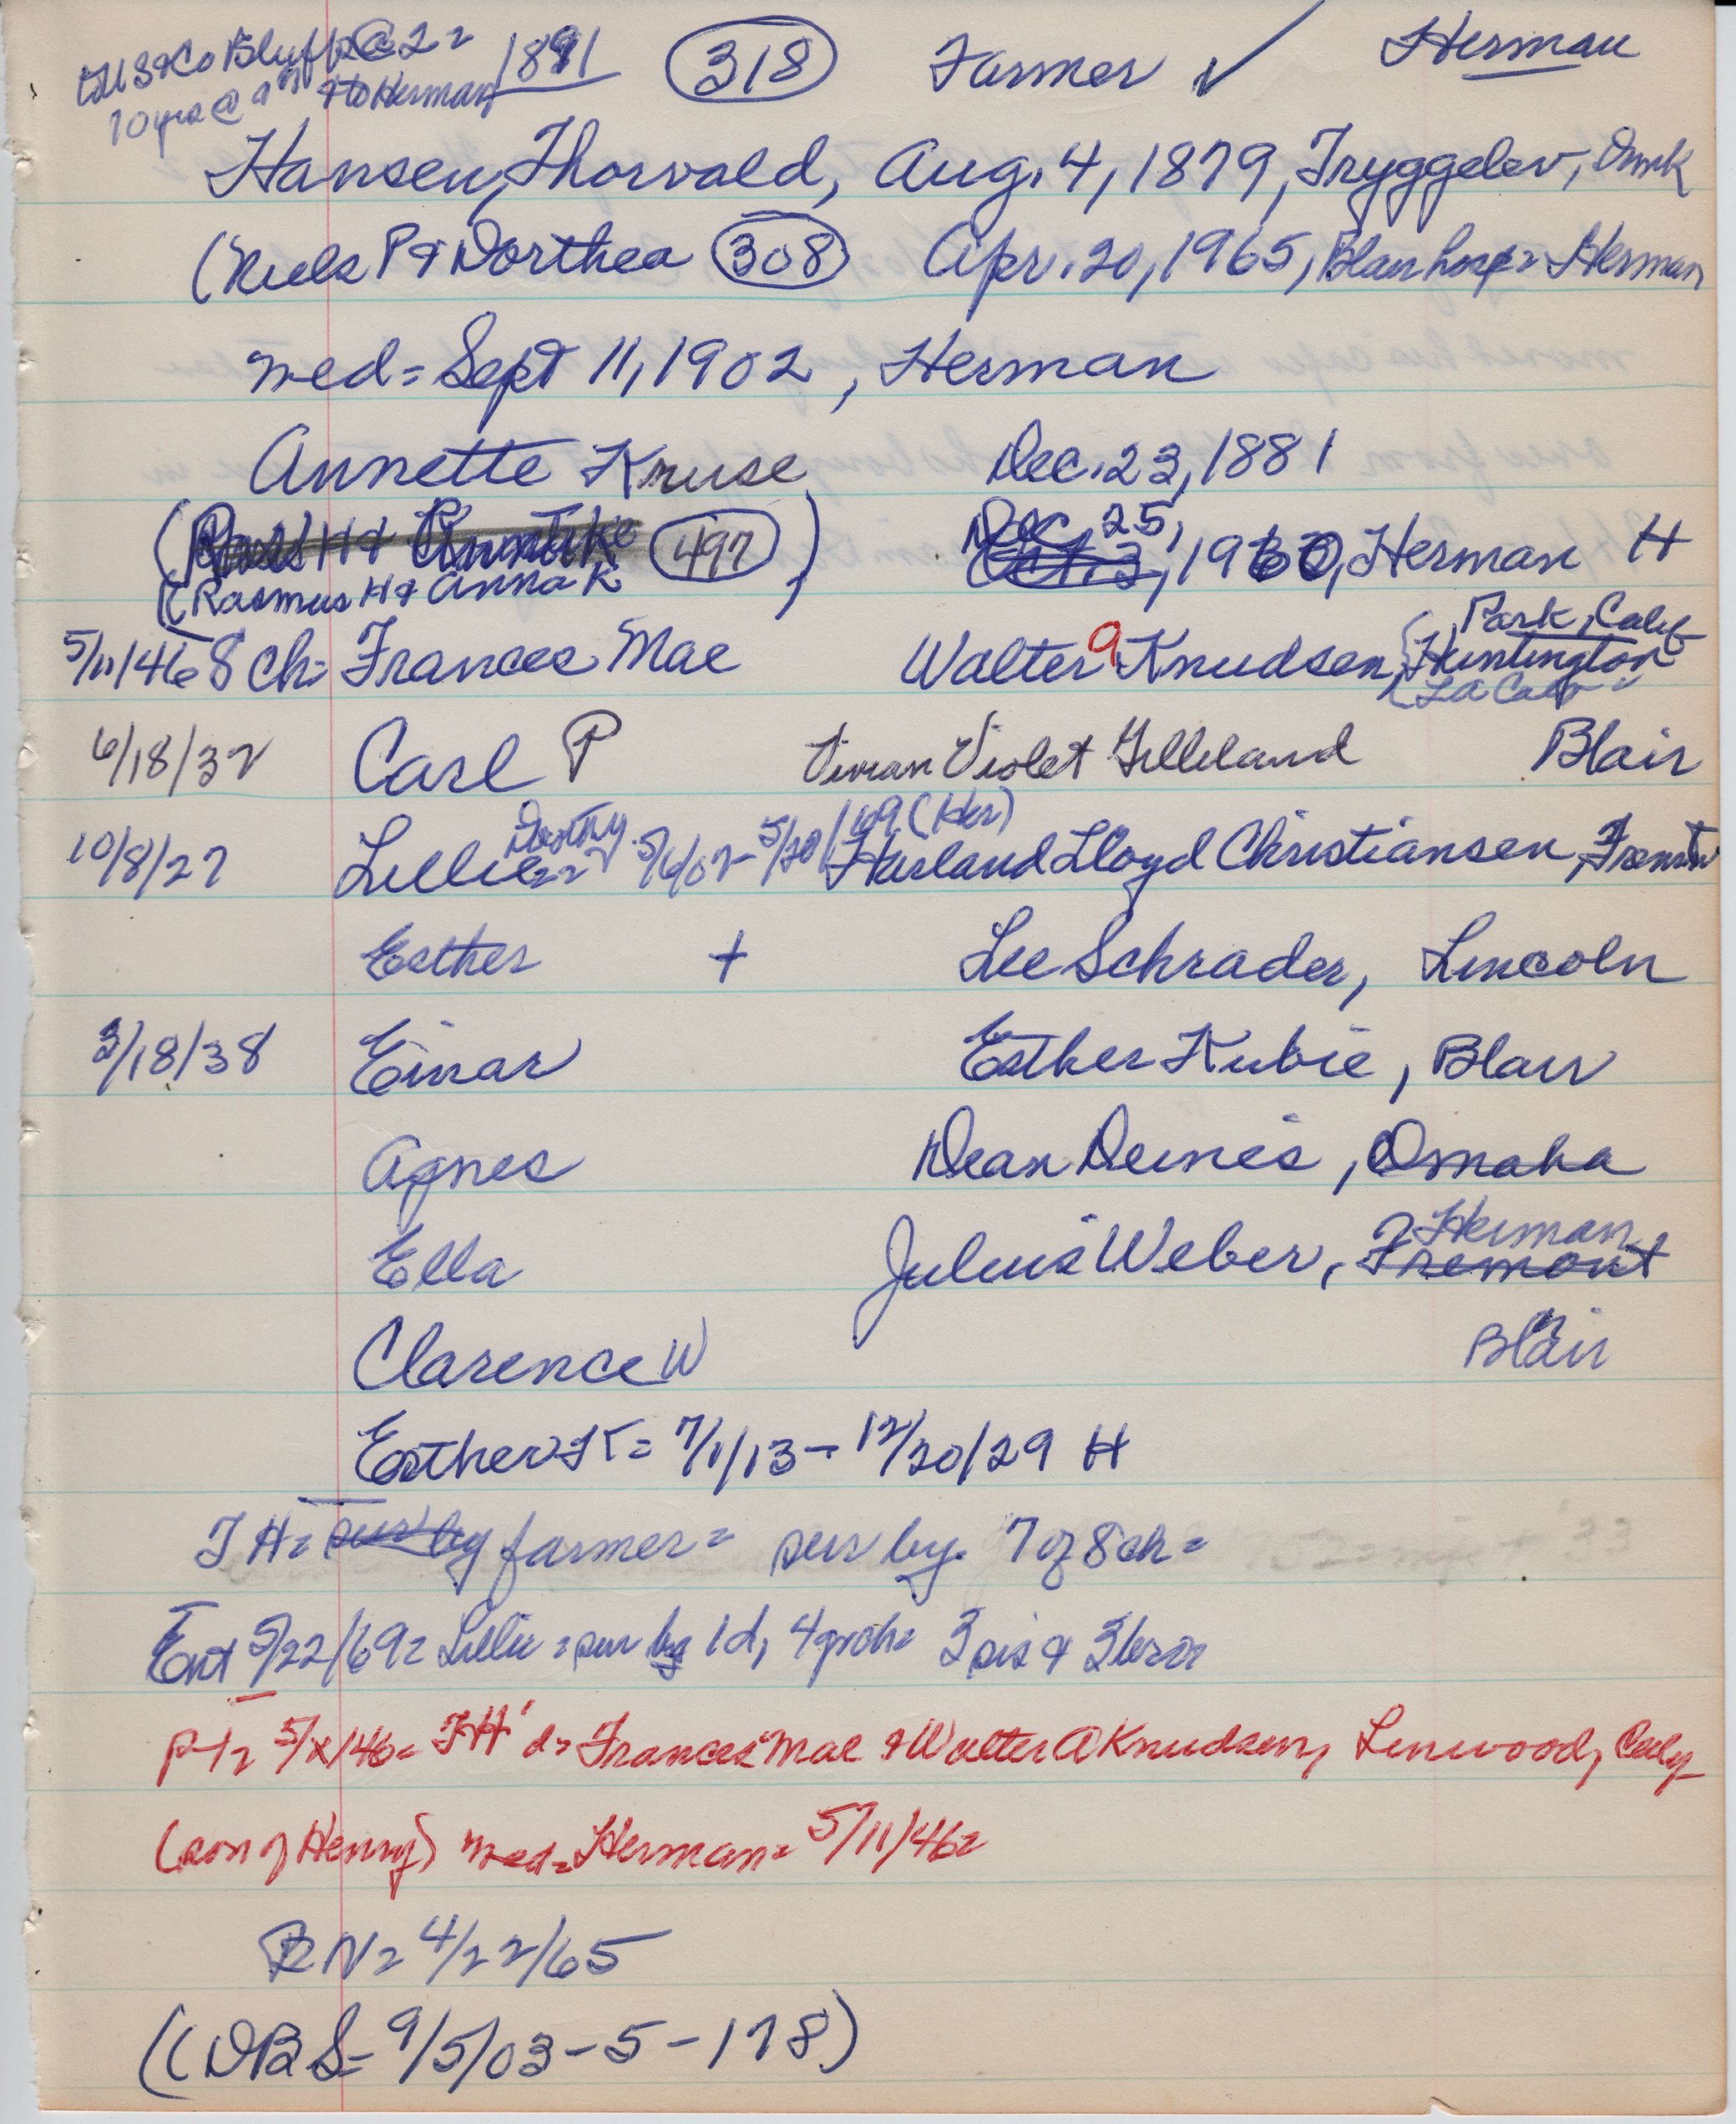 to US & Co Bluffs @ 2 = 1891 318 Farmer ✓ Herman
10 yrs @ to Herman
Hansen, Thorvald, Aug. 4, 1879, Tryggelev, Dmk
(Niels P & Dorthea 308 Apr. 20, 1965, Blair hosp = Herman
med = Sept 11, 1902, Herman
Annette Kruse Dec. 23, 1881
( H & 497 ) Dec. 25,
Oct. 3, 1960, Herman H
((Rasmus H & Anna K
Park, Calif
5/11/46 8 ch = Frances Mae Walter a Knudsen, Huntington
LA Calif
6/18/32 Carl P Vivian Violet Gilleland Blair
Dorthy
10/8/27 Lillie 5/6/07 - 5/20/69 (Her) Harland Lloyd Christiansen, Fremont
Esther + Lee Schrader, Lincoln
3/18/38 Einar Esther Kubie, Blair
Agnes Dean Deines, Omaha
? Herman
Ella Julius Weber, Fremont
Clarence W Blair
Esther K = 7/1/13 - 12/20/29 H
TH = sur by farmer = sur by. 7 of 8 ch =
Ent 5/22/69 = Lillie = sur by 1 d, 4 grch = 3 sis & 3 bros
P-T = 5/x/46 = TH' d = Frances Mae & Walter A Knudsen, Linwood, Calif
(son of Henry) med = Herman = 5/11/46 =
RN = 4/22/65
((DBS - 9/5/03 - 5 - 178)